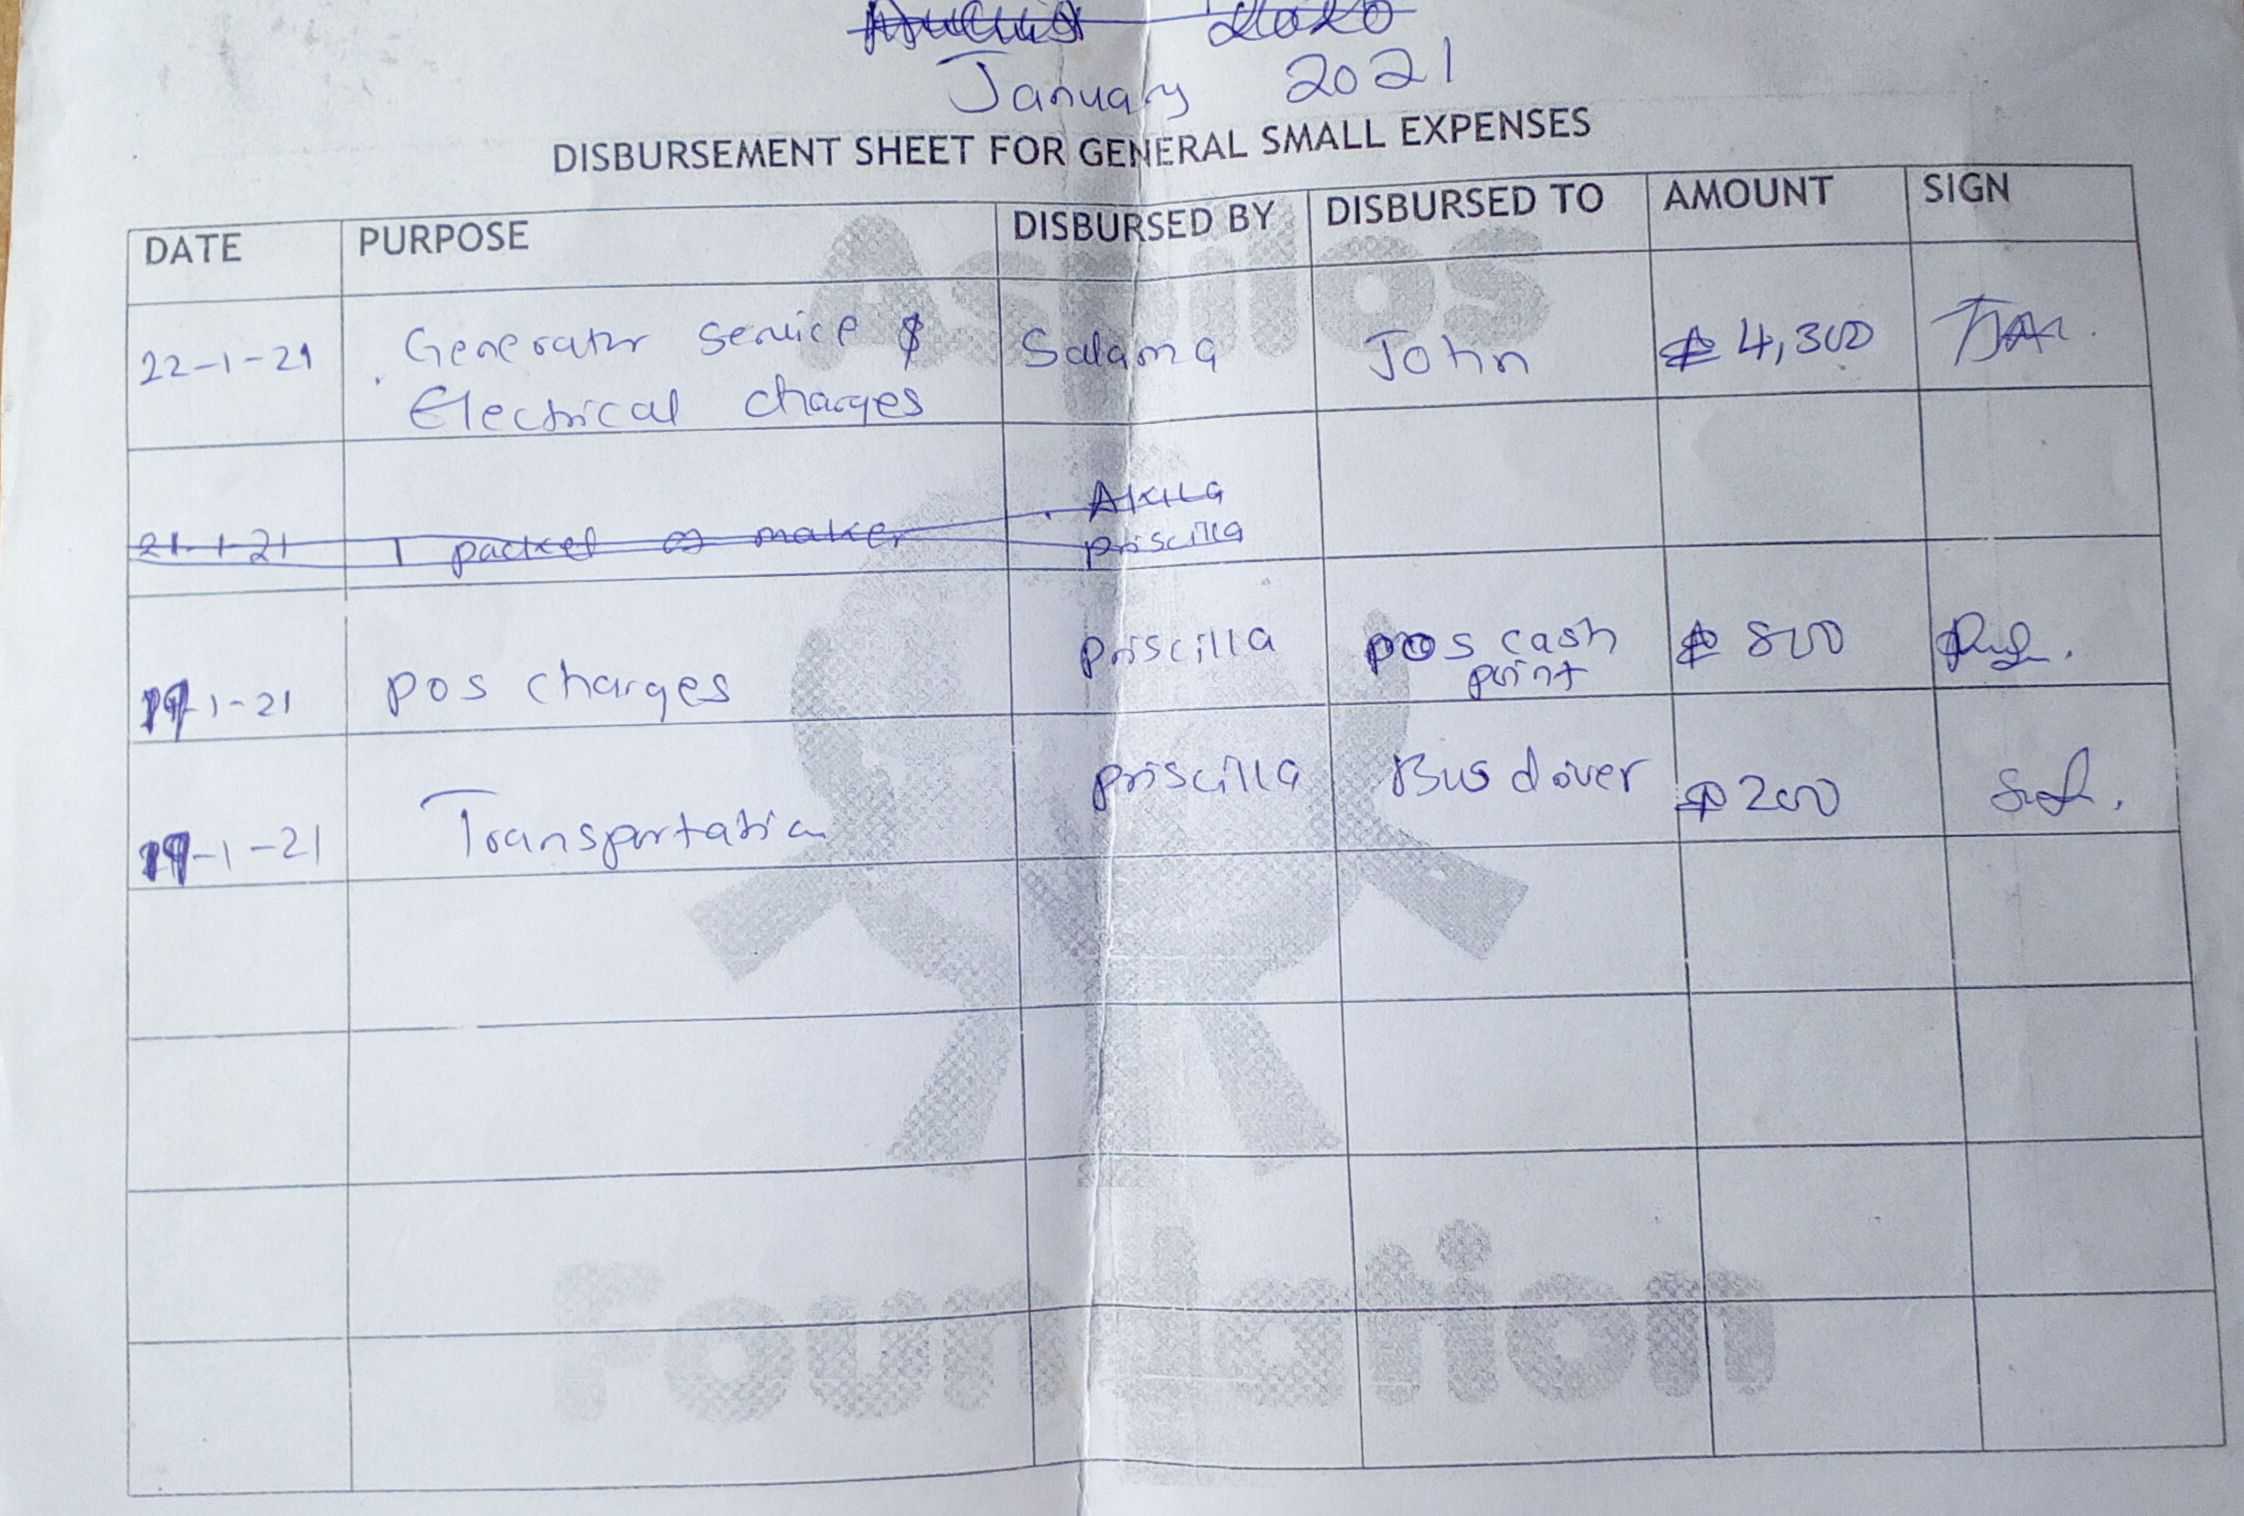 January 2021
DISBURSEMENT SHEET FOR GENERAL SMALL EXPENSES
DATE PURPOSE DISBURSED BY DISBURSED TO AMOUNT SIGN
22-1-21 Generator service & Salama John ₦ 4,300
Electrical charges
Akila
21-1-21 1 packet of maker priscilla
19-1-21 pos charges priscilla pos cash ₦ 800
point
19-1-21 Transportation priscilla Bus driver ₦ 200
Foundation